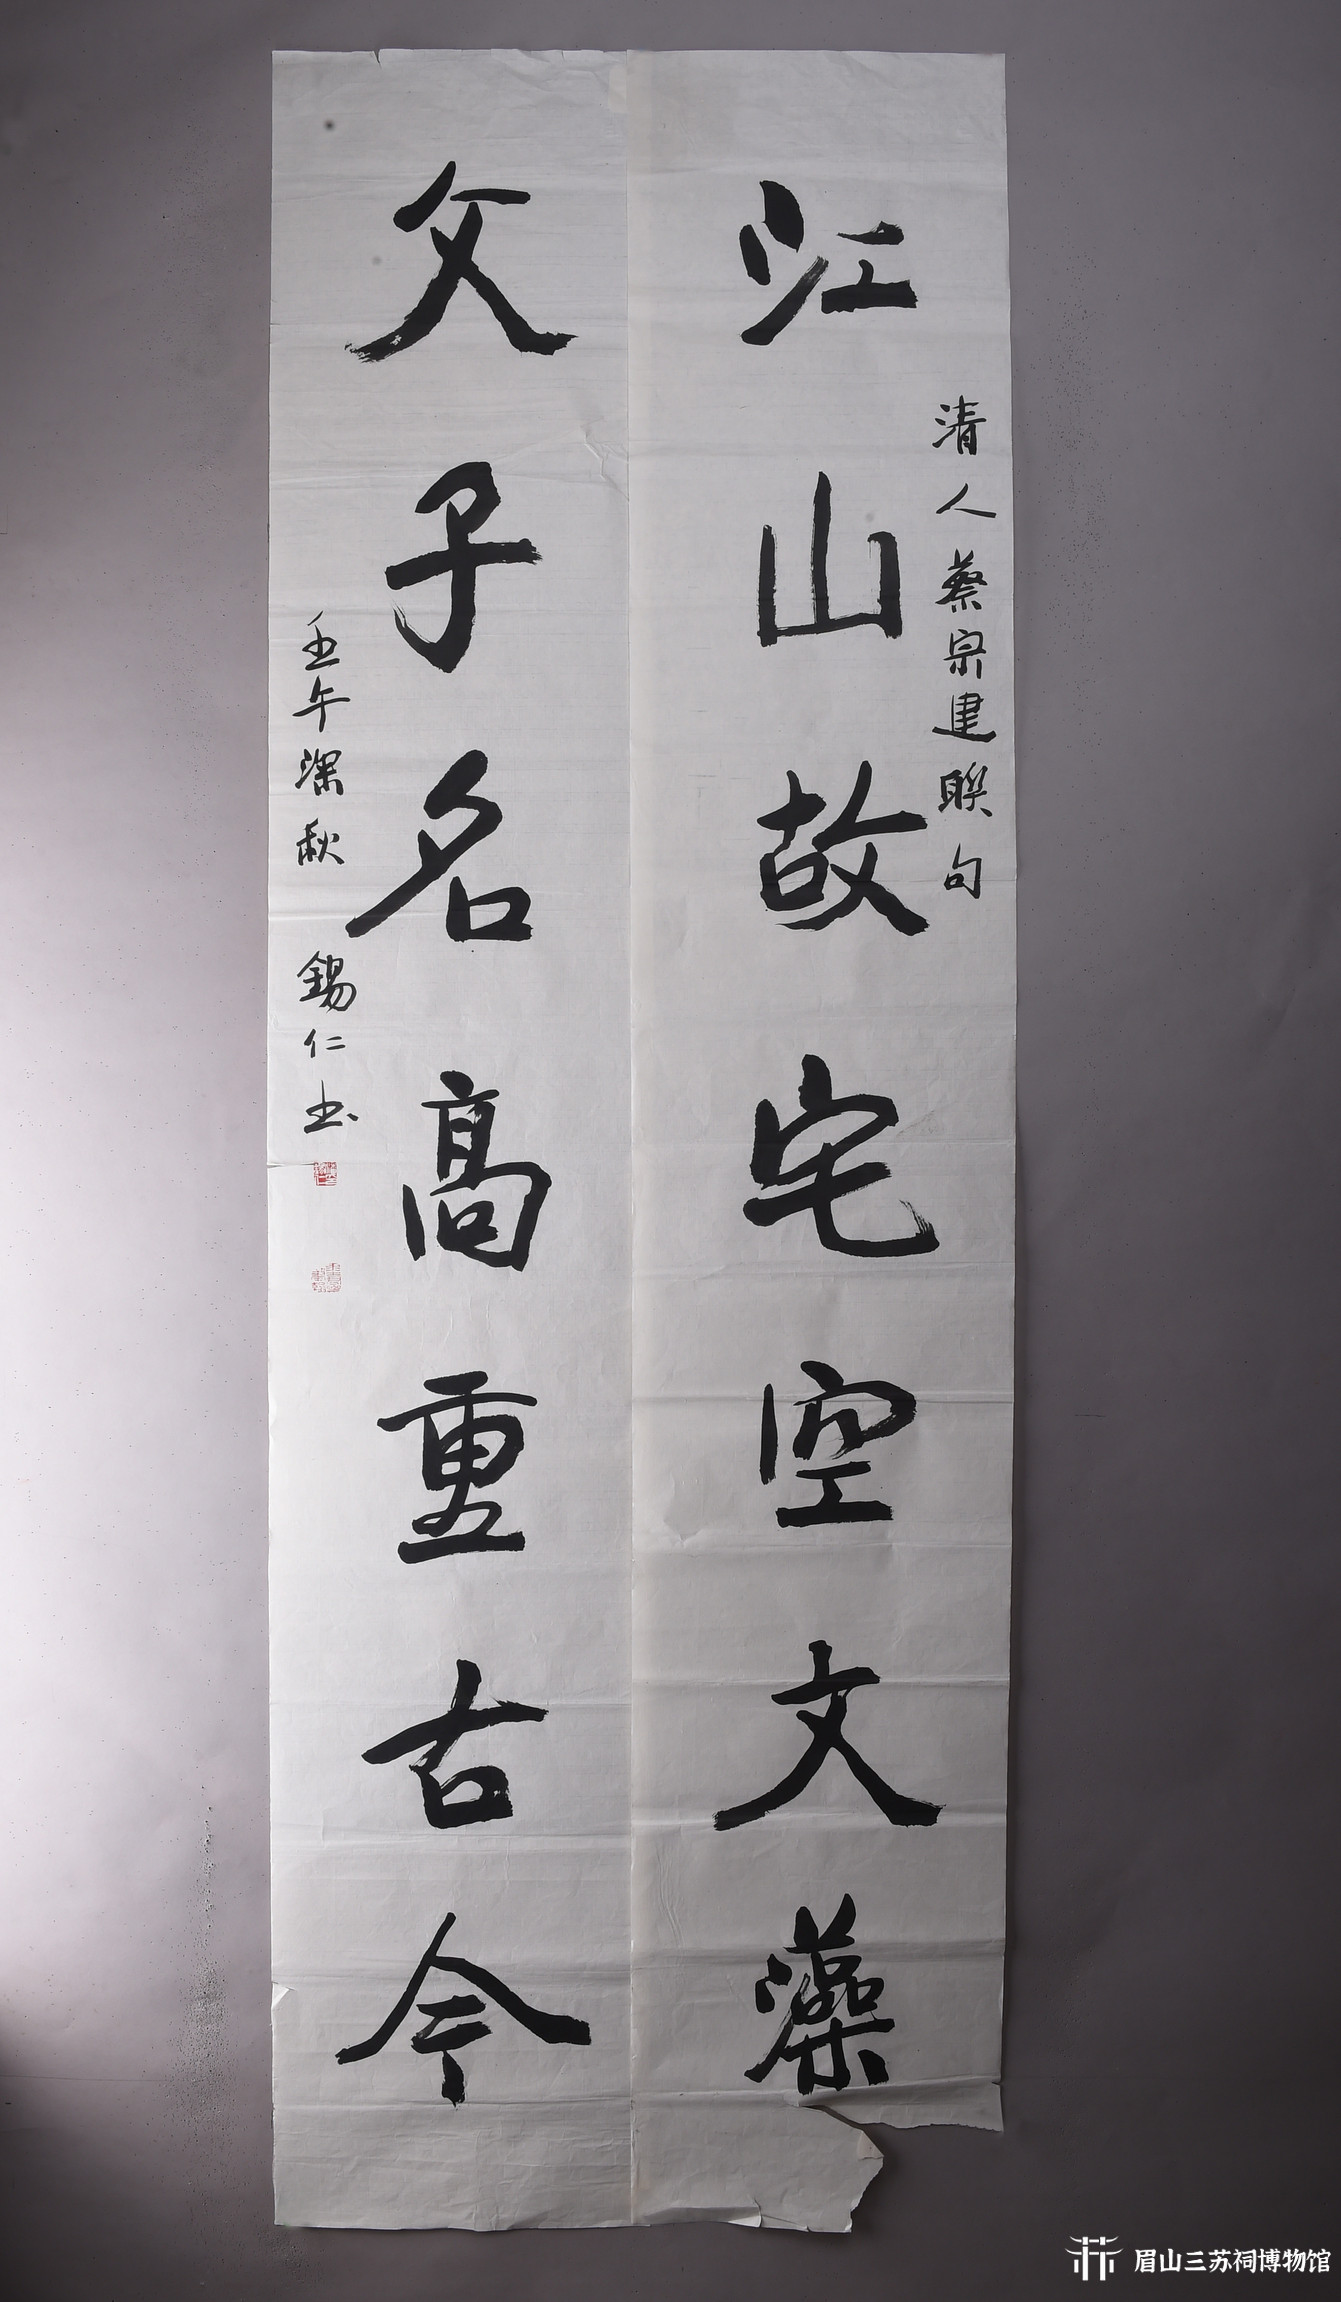 清人蔡宗建聯句
江山故宅空文藻
父子名高重古今
壬午深秋 錫仁书
眉山三苏祠博物馆